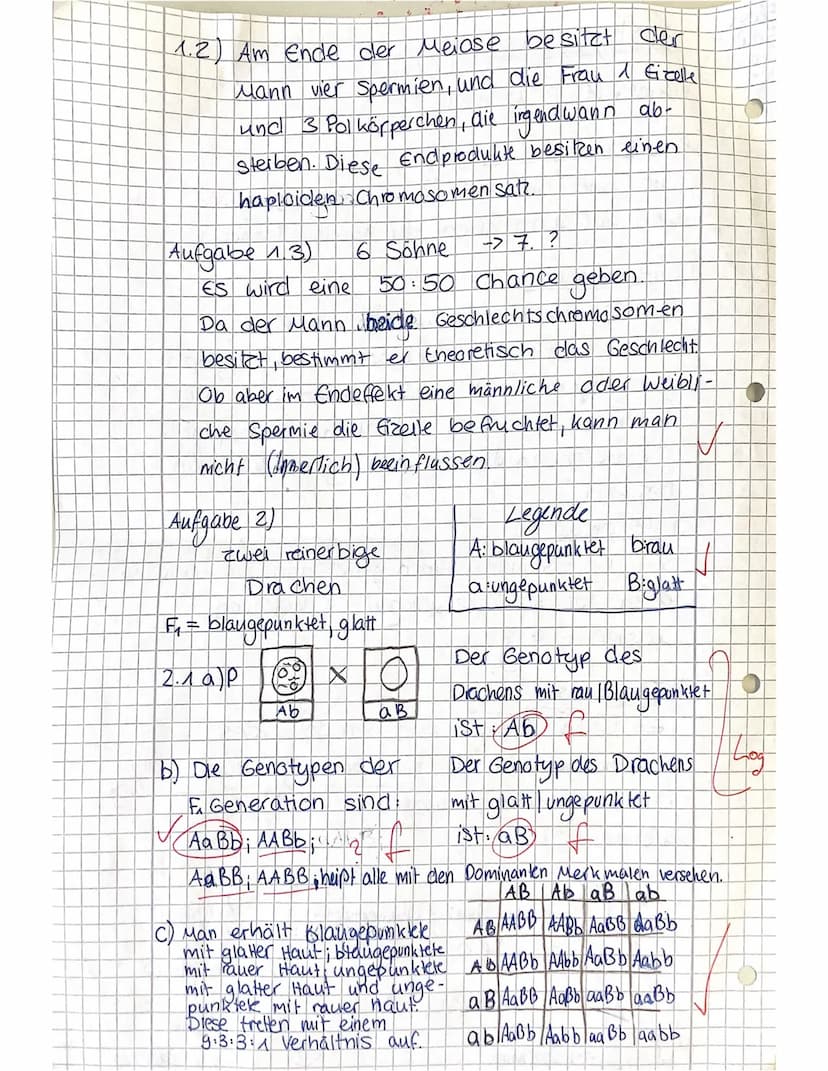 1.2) Am Ende der Meiose besitzt der
Mann vier Spermien, und die Frau 1 Eizelle
und 3 Polkörperchen, die irgendwann ab-
sterben. Diese Endprodukte besitzen einen
haploiden Chromosomensatz.
Aufgabe 1.3) 6 Söhne -> 7. ?
Es wird eine 50:50 Chance geben.
Da der Mann beide Geschlechtschromosomen
besitzt, bestimmt er theoretisch das Geschlecht.
Ob aber im Endeffekt eine männliche oder weibli-
che Spermie die Eizelle befruchtet, kann man
nicht (innerlich) beeinflussen.
Aufgabe 2)
zwei reinerbige
Drachen
Legende
A: blaugepunktet b:rau
a:ungepunktet B:glatt
F1 = blaugepunktet, glatt
2.1 a) P
X
Ab
aB
Der Genotyp des
Drachens mit rau/Blaugepunktet
ist: Ab f
Der Genotyp des Drachens
mit glatt/ungepunktet
ist: aB f
Log
b) Die Genotypen der
F1 Generation sind:
AaBb; AABb; ? f
AaBB; AABB, heißt alle mit den Dominanten Merkmalen versehen.
c) Man erhält Blaugepunktete
mit glatter Haut; blaugepunktete
mit rauer Haut; ungepunktete
mit glatter Haut und unge-
punktete mit rauer Haut.
Diese treten mit einem
9:3:3:1 Verhältnis auf.
AB Ab aB ab
AB AABB AABb AaBB AaBb
Ab AABb AAbb AaBb Aabb
aB AaBB AaBb aaBb aaBb
ab AaBb Aabb aaBb aabb